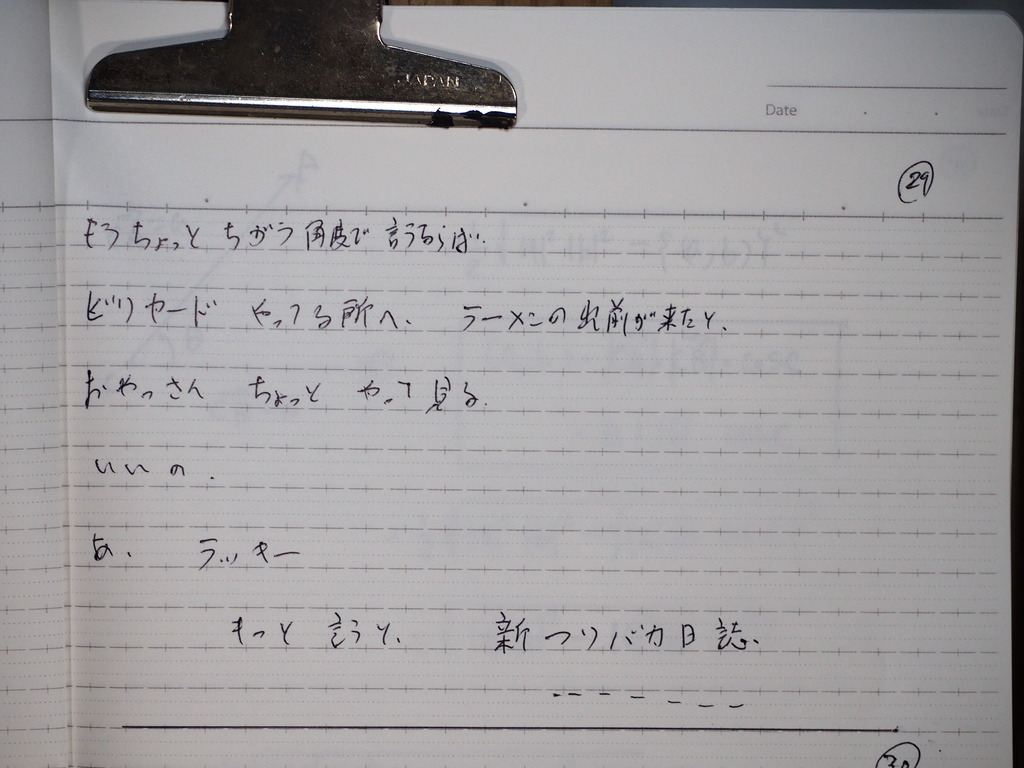 JAPAN
Date
29
もうちょっと ちがう 角度で 言うならば.
ビリヤード やってる所へ、 ラーメンの出前が来たと、
おやっさん ちょっと やって見る.
いいの.
あ、 ラッキー
もっと 言うと、 新 つりバカ日誌.
30